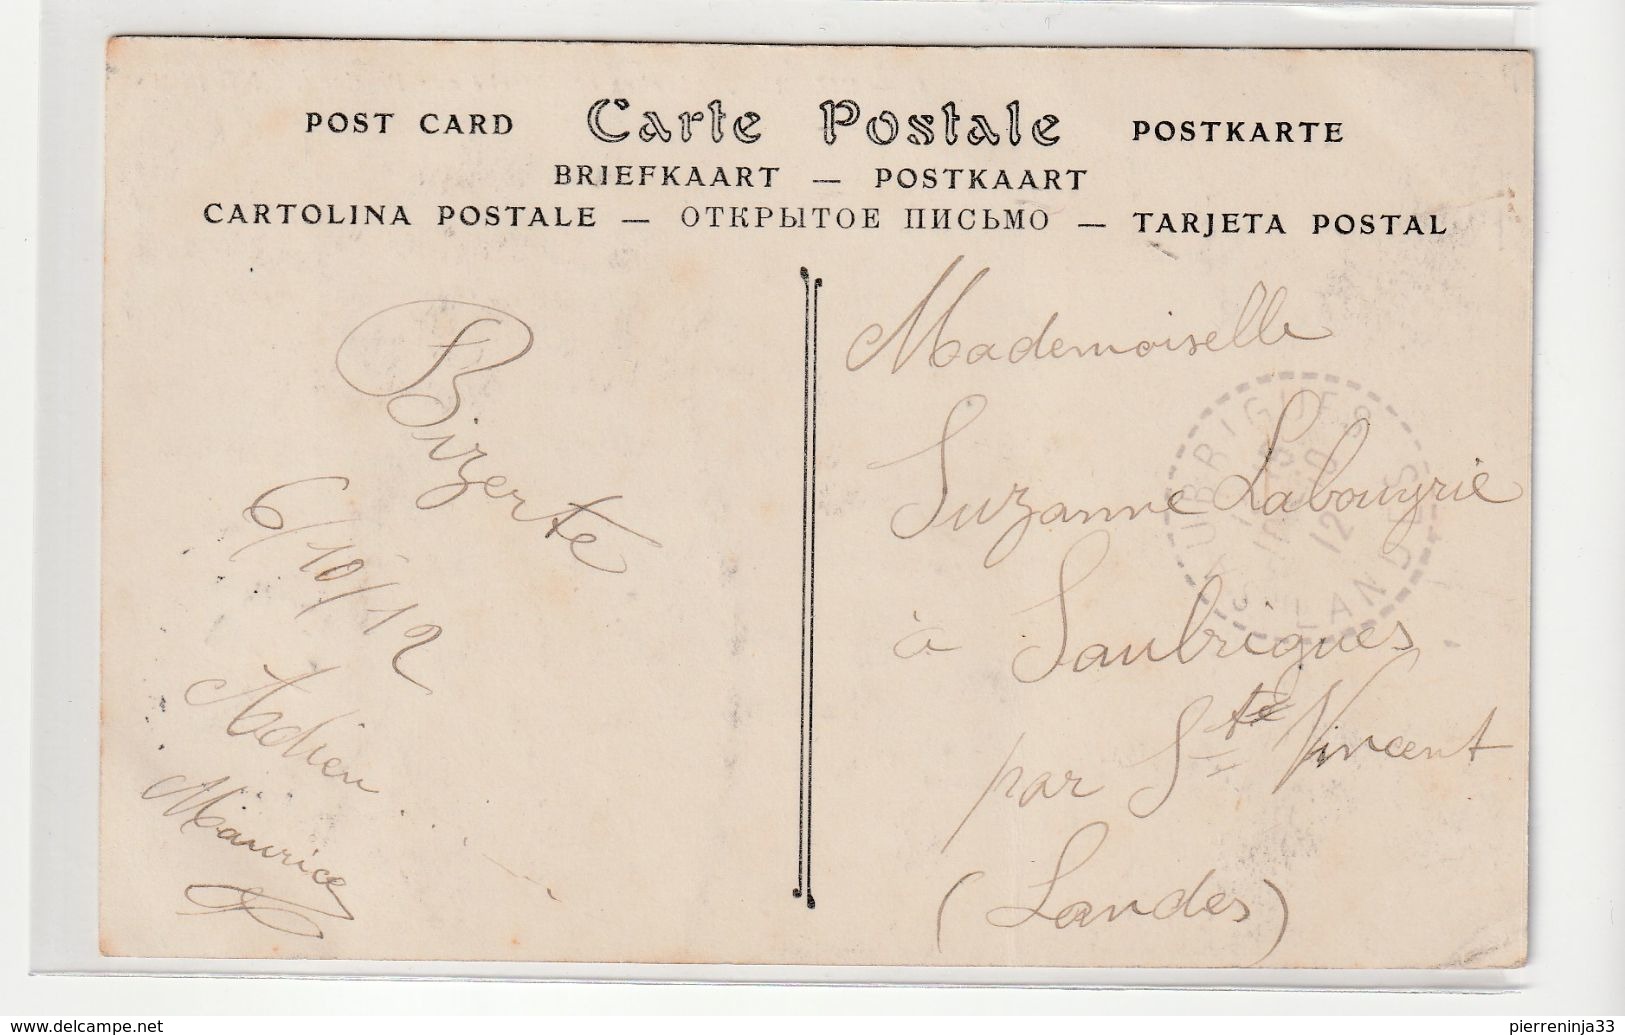 POST CARD Carte Postale POSTKARTE
BRIEFKAART — POSTKAART
CARTOLINA POSTALE — ОТКРЫТОЕ ПИСЬМО — TARJETA POSTAL
Bizerte
6/10/12
Adieu....
Maurice
Mademoiselle
Suzanne Labouyrie
à Saubrigues
par Ste Vincent
(Landes)
SAUBRIGUES
12
LANDES
www.delcampe.net
pierreninja33